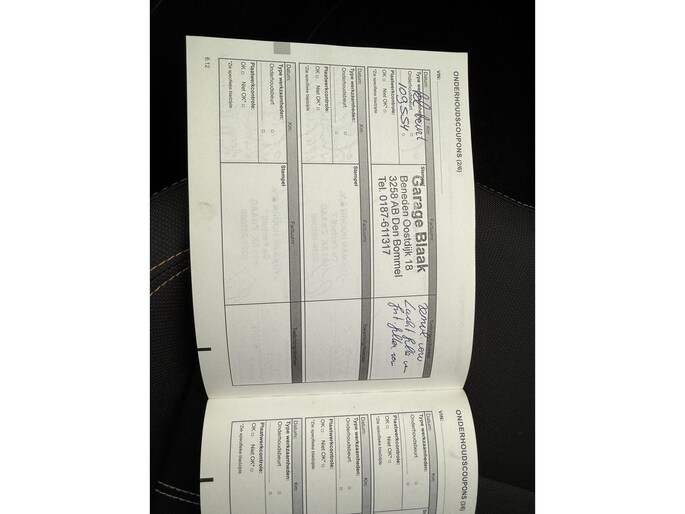 ONDERHOUDSCOUPONS (2/6)
VIN:
Datum: Km: Factuurnr.:
Type werkzaamheden: Stempel
Onderhoudsbeurt
109.554
Plaatwerkcontrole:
OK Niet OK*
*Zie specifieke bladzijde
Garage Blaak
Beneden Oostdijk 18
3258 AB Den Bommel
Tel. 0187-611317
Datum: Km: Factuurnr.:
Type werkzaamheden: Stempel
Onderhoudsbeurt
Plaatwerkcontrole:
OK Niet OK*
*Zie specifieke bladzijde
Datum: Km: Factuurnr.:
Type werkzaamheden: Stempel
Onderhoudsbeurt
Plaatwerkcontrole:
OK Niet OK*
*Zie specifieke bladzijde
6.12
ONDERHOUDSCOUPONS (3/6)
VIN:
Datum: Km:
Type werkzaamheden:
Onderhoudsbeurt
Plaatwerkcontrole:
OK Niet OK*
*Zie specifieke bladzijde
Datum: Km:
Type werkzaamheden:
Onderhoudsbeurt
Plaatwerkcontrole:
OK Niet OK*
*Zie specifieke bladzijde
Datum: Km:
Type werkzaamheden:
Onderhoudsbeurt
Plaatwerkcontrole:
OK Niet OK*
*Zie specifieke bladzijde